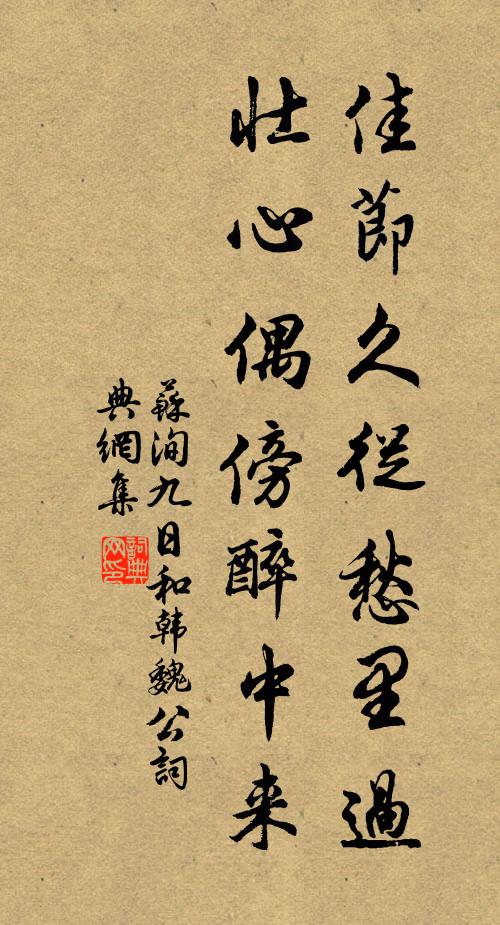 佳節久從愁里過
壯心偶傍醉中来
蘇洵九日和韩魏公詞
典網集
詞典网印